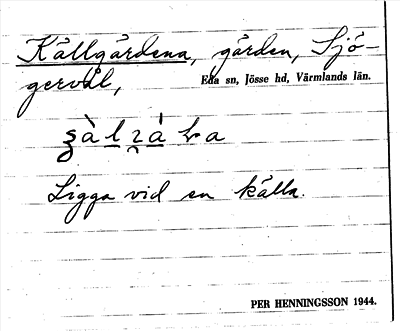 Källgårdena, gården, Sjö-
gervål,
Eda sn, Jösse hd, Värmlands län.
Ligga vid en källa.
PER HENNINGSSON 1944.